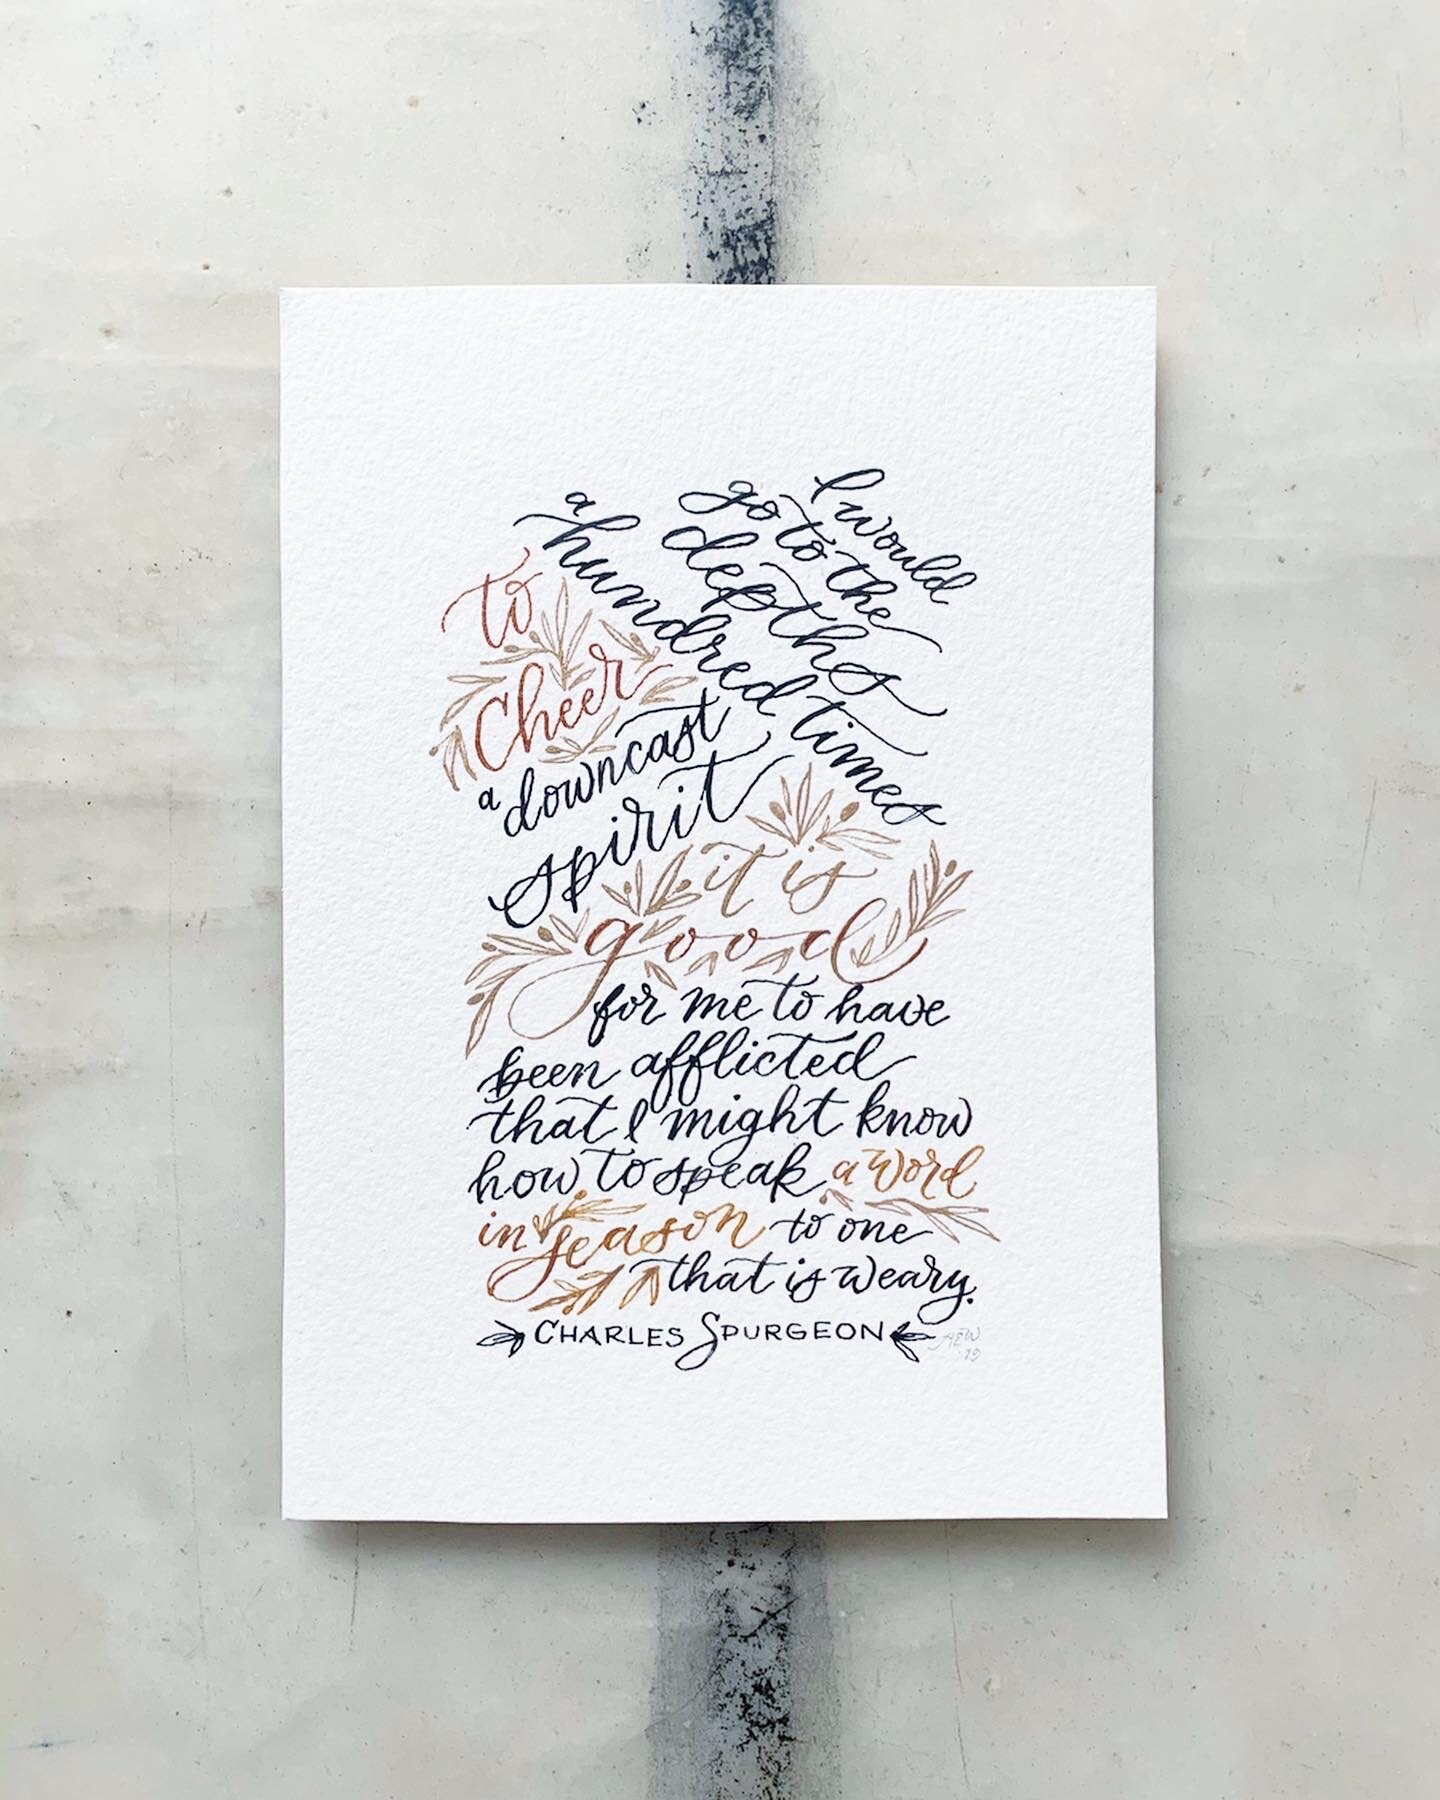 I would
go to the
depths
a hundred times
to
Cheer
a downcast
spirit
it is
good
for me to have
been afflicted
that I might know
how to speak a word
in season to one
that is weary.
CHARLES SPURGEON
AEW
.19